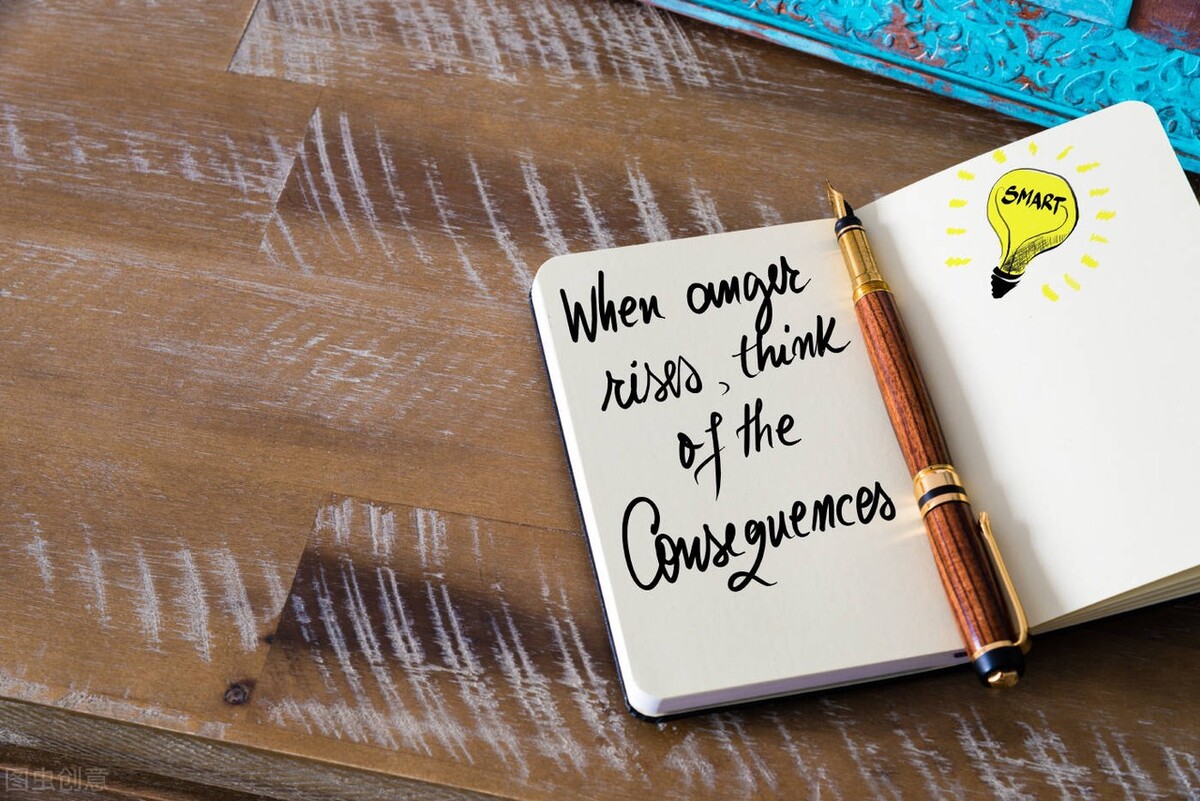 When anger
rises, think
of the
Consequences
SMART
图虫创意